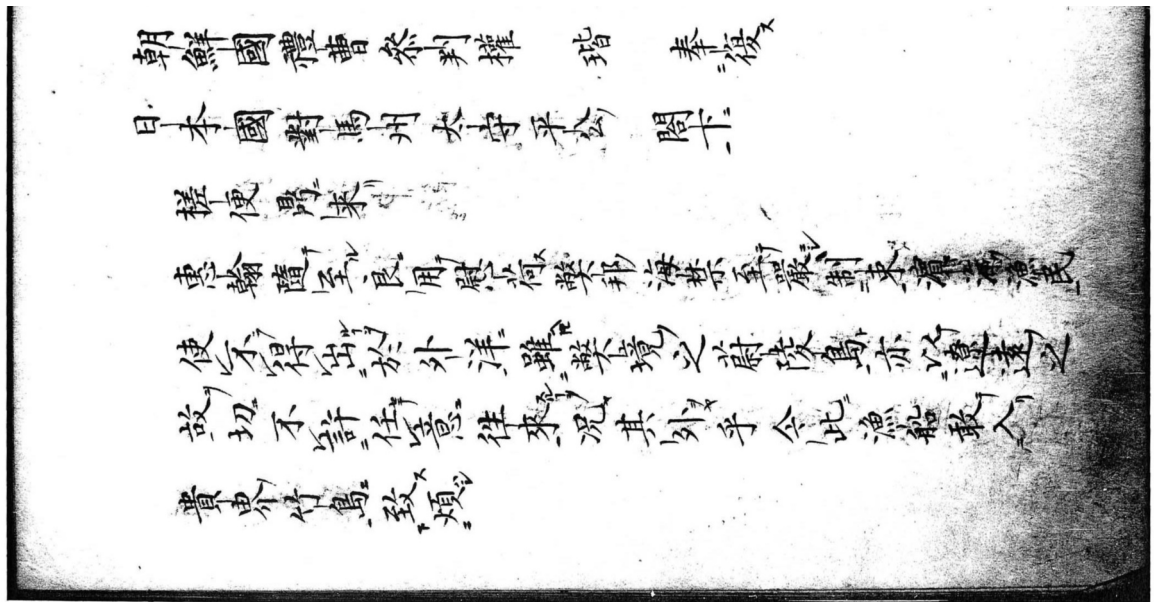 朝鮮國禮曹參判權　瑎　奉復
日本國對馬州太守平公　閤下
槎便鼎来
惠翰隨至良用慰荷弊邦海禁至嚴制束濱海漁民
使不得出於外洋雖弊境之蔚陵島亦以遼遠之
故切不許任意往來況其外乎今此漁船敢入
貴界竹島致煩